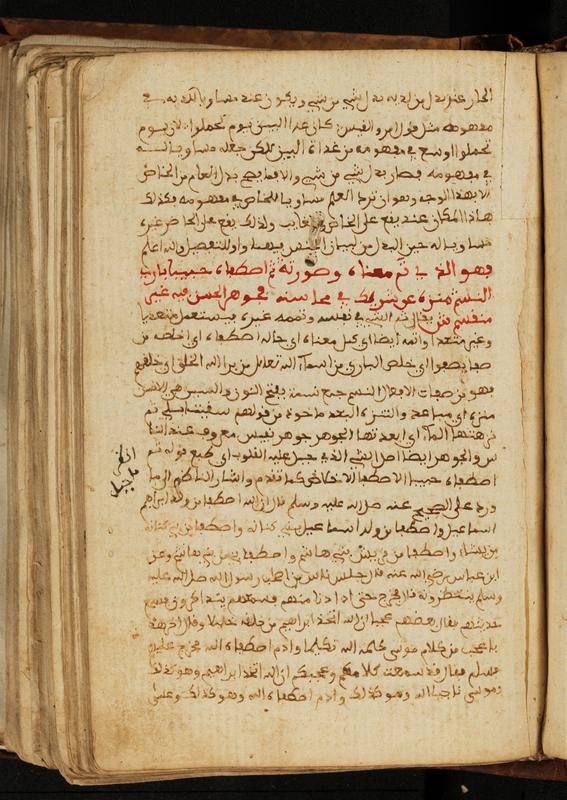 الجار عند بدل من لديه بدل شي من شي ويكون عنده مساويا لكونه في
مفهومه مثل قول امرئ القيس كان غداة البين يوم تحملوا لان يوم
تحملوا اوسع في مفهومه من غداة البين لكن جعله مساويا له
في مفهومه فصار بدل شي من شي ولا يصح بدل العام من الخاص
الا بهذا الوجه وهو ان ترد العلم مساويا للخاص في مفهومه فكذلك
هاذا المكان عند يقع على الخاص ولذلك يقع على الحاضر غير
والله اعلم
فهو الذي تم معناه وصورته ثم اصطفاه حبيبا بارئ
النسم منزه عن شريك في محاسنه فجوهر الحسن فيه غير
منقسم ش يقال تم الشي في نفسه وتممه غيره يستعمل متعديا
وغير متعد واتمه ايضا اي كمل معناه اي جماله اصطفاه اي اخلصه من
صفا يصفوا اي خلص الباري من اسماء الله تعالى من برا الله الخلق اي خلقهم
فهو من صفات الافعال النسم جمع نسمة بفتح النون والسين هي الانفس
منزه اي مباعد والتنزه البعد ماخوذ من قولهم
الماء اي ابعدتها الجوهر جوهر نفيس معروف عند النا
س والجوهر ايضا اصل الشي الذي جبل عليه القلوب اي طبع قوله ثم
اصطفاه حبيبا الاصطفا الاختيار كما تقدم واشار الناظم الى ما
ورد في الصحيح عنه صلى الله عليه وسلم قال ان الله اصطفى من ولد ابراهيم
اسماعيل واصطفى من ولد اسماعيل بني كنانة واصطفى من بني كنانة
قريشا واصطفى من قريش بني هاشم واصطفاني من بني هاشم وعن
ابن عباس رضي الله عنه قال جلس ناس من اصحاب رسول الله صلى الله عليه
وسلم ينتظرونه قال فخرج حتى اذا دنا منهم فسمعهم يتذاكرون فسمع
حديثهم فقال بعضهم عجبا ان الله اتخذ ابراهيم من خلقه خليلا وقال اخر ماذا
باعجب من كلام موسى كلمه الله تكليما وادم اصطفاه الله فخرج عليهم
فسلم فقال قد سمعت كلامكم وعجبكم ان الله اتخذ ابراهيم وهو كذلك
وموسى ناجيا الله وهو كذلك وادم اصطفاه الله وهو كذلك وعيسى
انظر